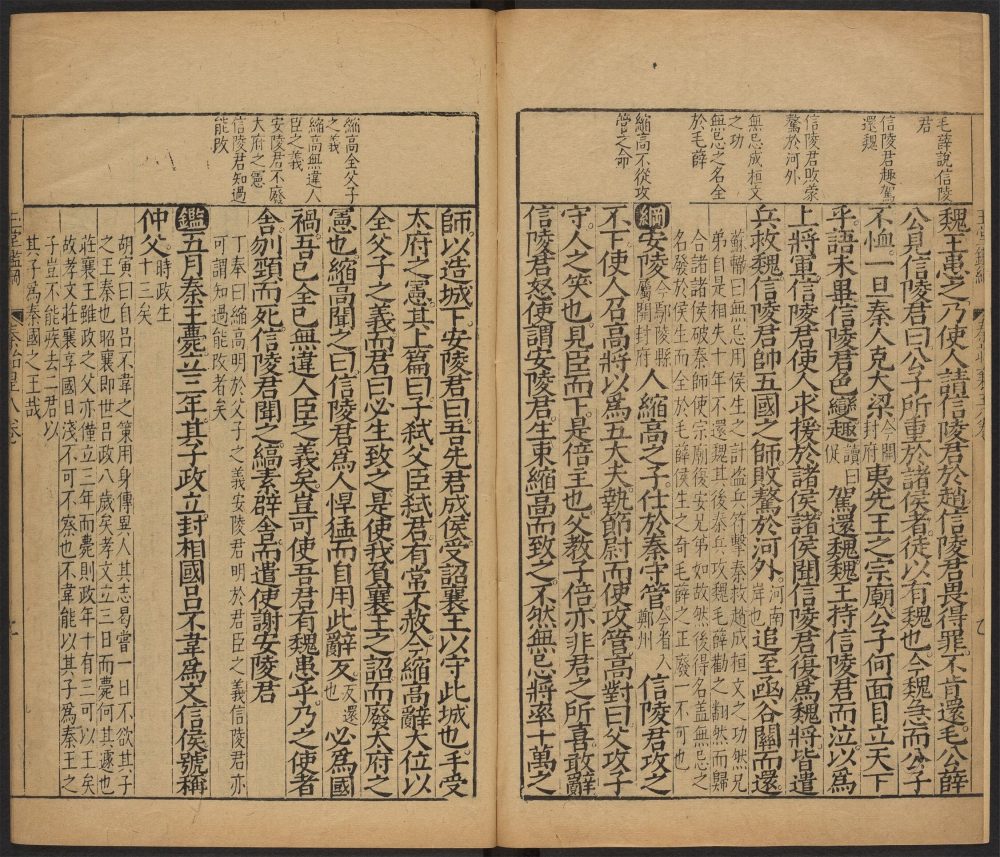 毛薛說信陵
君
信陵君趣駕
還魏
信陵君敗蒙
驁於河外
無忌成桓文
之功
無忌之名全
於毛薛
縮高不從攻
管之命
魏王患之乃使人請信陵君於趙信陵君畏得罪不肯還毛公薛
公見信陵君曰公子所重於諸侯者徒以有魏也今魏急而公子
不恤一旦秦人克大梁今開封府夷先王之宗廟公子何面目立天下
乎語未畢信陵君色變趣讀曰促駕還魏魏王持信陵君而泣以爲
上將軍信陵君使人求援於諸侯諸侯聞信陵君復爲魏將皆遣
兵救魏信陵君帥五國之師敗驁於河外河南岸也追至函谷關而還
蘇轍曰無忌用侯生之計盜兵符擊秦救趙成桓文之功然兄
弟自是相失十年不還魏其後秦兵攻魏毛薛勸之翻然而歸
合諸侯破秦師使宗廟復安兄弟如故然後得名蓋無忌之
名發於侯生而全於毛薛侯生之奇毛薛之正廢一不可也
綱安陵今鄢陵縣屬開封府人縮高之子仕於秦守管今省入鄭州信陵君攻之
不下使人召高將以爲五大夫執節尉而使攻管高對曰父攻子
守人之笑也見臣而下是倍王也父教子倍亦非君之所喜敢辭
信陵君怒使謂安陵君生束縮高而致之不然無忌將率十萬之
縮高全父子
之義
縮高無違人
臣之義
安陵君不廢
大府之憲
信陵君知過
能改
師以造城下安陵君曰吾先君成侯受詔襄王以守此城也手受
太府之憲其上篇曰子弒父臣弒君有常不赦今縮高辭大位以
全父子之義而君曰必生致之是使我負襄王之詔而廢太府之
憲也縮高聞之曰信陵君爲人悍猛而自用此辭反反還也必爲國
禍吾已全己無違人臣之義矣豈可使吾君有魏患乎乃之使者
舍刎頸而死信陵君聞之縞素辟舍而遣使謝安陵君
丁奉曰縮高明於父子之義安陵君明於君臣之義信陵君亦
可謂知過能改者矣
鑑五月秦王薨立三年其子政立封相國呂不韋爲文信侯號稱
仲父時政生十三矣
胡寅曰自呂不韋之策用身傳異人其志曷嘗一日不欲其子
之王秦也昭襄即世呂政八歲矣孝文立三日而薨何其遽也
莊襄王雖政之父亦僅立三年而薨則政年十有三可以王矣
故孝文莊襄享國日淺不可不察也不韋能以其子爲秦王之
子豈不能疾去二君以
其子爲秦國之王哉